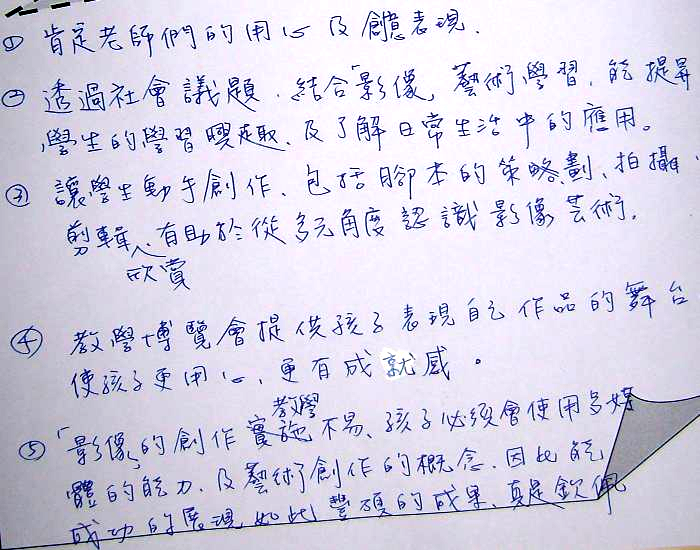 ① 肯定老師們的用心及創意表現.
② 透過社會議題.結合「影像」藝術學習.能提昇
學生的學習興趣.及了解日常生活中的應用。
③ 讓學生動手創作、包括腳本的策略劃、拍攝、
剪輯、欣賞有助於從多元角度認識影像藝術.
④ 教學博覽會提供孩子表現自己作品的舞台
使孩子更用心、更有成就感。
⑤「影像」的創作教學不易、孩子必須會使用多媒
體的能力.及藝術創作的概念.因此能
成功的展現如此豐碩的成果、真是欽佩